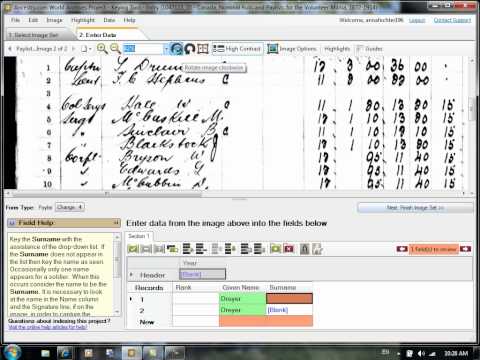 Ancestry.com World Archives Project - Keying Tool - [Entry (1047223_2) - Canada, Nominal Rolls and Paylists for the Volunteer Militia, 1857-1914]
File Edit View Image Tools Help
Welcome, annafechter396
1: Select Image Set
2: Enter Data
Paylist...Image 2 of 2
High Contrast
Image Options
Highlights
Full Screen
Rotate image clockwise
1 Captn 17 3 00 36 00
2 Lieut F. C. Stephens C
4 Col Sergt Hale W C 12 1 80 13 80 15
5 Sergt McCaskill M. 17 1 10 13 80 15
6 " Sinclair B. C
7 " Blackstock J
8 Corpl Bryson W 12 95 11 40 15
9 " Edwards 12 95 11 40 15
10 " McCubbin D. 12 95 11 40 15
Form Type: Paylist Change
Next: Finish Image Set >>
Field Help:
Key the Surname with the assistance of the drop-down list. If the Surname does not appear in the list then key the name as seen. Occasionally only one name appears for a soldier. When this occurs consider the name to be the Surname. It is necessary to look at the name in the Name column and the Signature line, if on the image, in order to capture the
Questions about indexing this project?
Visit the online help articles for help!
Enter data from the image above into the fields below
Section 1
1 field(s) to review
Year
Header [Blank]
Records Rank Given Name Surname
1 Dreyer
2 Dreyer [Blank]
New
EN
10:28 AM